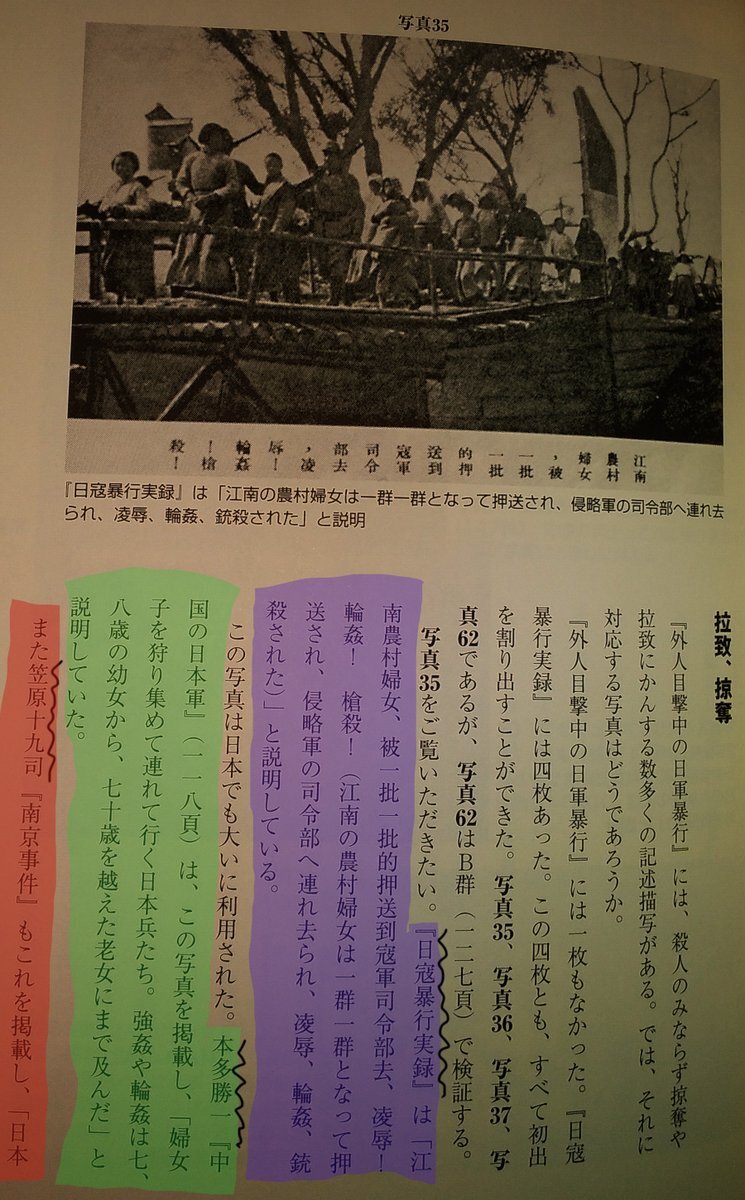 写真35
江南農村婦女被，一批一批的押送到寇軍司令部去，凌辱！輪姦！槍殺！
『日寇暴行実録』は「江南の農村婦女は一群一群となって押送され、侵略軍の司令部へ連れ去
られ、凌辱、輪姦、銃殺された」と説明
拉致、掠奪
『外人目撃中の日軍暴行』には、殺人のみならず掠奪や
拉致にかんする数多くの記述描写がある。では、それに
対応する写真はどうであろうか。
『外人目撃中の日軍暴行』には一枚もなかった。『日寇
暴行実録』には四枚あった。この四枚とも、すべて初出
を割り出すことができた。写真35、写真36、写真37、写
真62であるが、写真62はB群（一二七頁）で検証する。
写真35をご覧いただきたい。『日寇暴行実録』は「江
南農村婦女、被一批一批的押送到寇軍司令部去、凌辱！
輪姦！　槍殺！（江南の農村婦女は一群一群となって押
送され、侵略軍の司令部へ連れ去られ、凌辱、輪姦、銃
殺された）」と説明している。
この写真は日本でも大いに利用された。本多勝一『中
国の日本軍』（一一八頁）は、この写真を掲載し、「婦女
子を狩り集めて連れて行く日本兵たち。強姦や輪姦は七、
八歳の幼女から、七十歳を越えた老女にまで及んだ」と
説明していた。
また笠原十九司『南京事件』もこれを掲載し、「日本